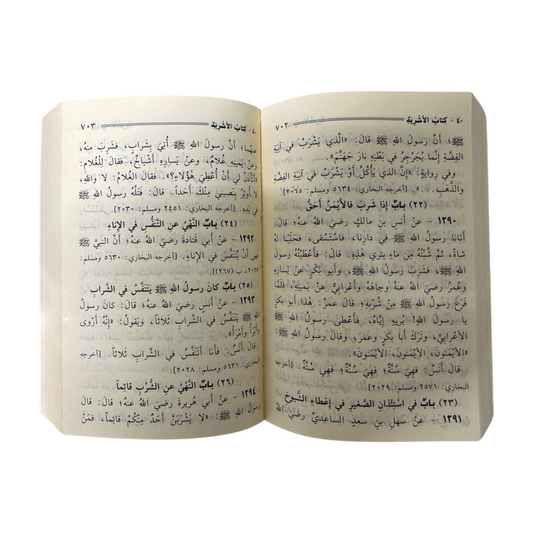 ٤٠ - كتاب الأشربة ٧٠٢
أنَّ رَسولَ اللهِ ﷺ قالَ: «الَّذي يَشْرَبُ في آنِيَةِ
الفِضَّةِ إنَّما يُجَرْجِرُ في بَطْنِهِ نارَ جَهَنَّمَ».
وفي رواية: «إنَّ الذي يَأْكُلُ أَوْ يَشْرَبُ في آنِيَةِ الفِضَّةِ
والذَّهَبِ». [أخرجه البخاري: ٥٦٣٤ ومسلم: ٢٠٦٥].
(٢٢) بابٌ إذا شَرِبَ فالأيْمَنُ أحَقُّ
١٢٩٠ - عَنْ أنَسِ بنِ مالِكٍ رَضِيَ اللهُ عَنْهُ قالَ:
أتانا رَسولُ اللهِ ﷺ في دارِنا، فاسْتَسْقى، فَحَلَبْنا لَهُ
شاةً، ثُمَّ شُبْتُهُ مِن ماءِ بِئْري هٰذِهِ. قالَ: فأعْطَيْتُ رَسولَ
اللهِ ﷺ، فَشَرِبَ رَسولُ اللهِ ﷺ، وأبو بَكْرٍ عَنْ يَسارِهِ
وعُمَرُ رَضِيَ اللهُ عَنْهُما وِجاهَهُ، وأعْرابِيٌّ عَنْ يَمينِهِ، فَلَمَّا
فَرَغَ رَسولُ اللهِ ﷺ مِنْ شُرْبِهِ؛ قالَ عُمَرُ: هٰذا أبو بَكْرٍ
يا رَسولَ اللهِ! يُريهِ إيَّاهُ، فأعْطى رَسولُ اللهِ ﷺ
الأعْرابِيَّ، وتَرَكَ أبا بَكْرٍ وعُمَرَ، وقالَ رَسولُ اللهِ ﷺ:
«الأيْمَنونَ، الأيْمَنونَ، الأيْمَنونَ».
قالَ أنَسٌ: فَهِيَ سُنَّةٌ، فَهِيَ سُنَّةٌ، فَهِيَ سُنَّةٌ. [أخرجه
البخاري: ٢٥٧١ ومسلم: ٢٠٢٩].
(٢٣) بابٌ في اسْتِئْذانِ الصَّغيرِ في إعْطاءِ الشُّيوخِ
١٢٩١ - عَنْ سَهْلِ بنِ سَعْدٍ الساعِدِيِّ رَضِيَ اللهُ
٤٠ - كتاب الأشربة ٧٠٣
عَنْهُما؛ أنَّ رَسولَ اللهِ ﷺ أُتِيَ بِشَرابٍ، فَشَرِبَ مِنْهُ
وعَنْ يَمينِهِ غُلامٌ، وعَنْ يَسارِهِ أشْياخٌ، فَقالَ لِلْغُلامِ:
«أتَأْذَنُ لي أنْ أُعْطِيَ هٰؤُلاءِ؟». فَقالَ الغُلامُ: لا واللهِ،
لا أُوثِرُ بِنَصيبي مِنْكَ أحَداً. قالَ: فَتَلَّهُ رَسولُ اللهِ ﷺ
في يَدِهِ. [أخرجه البخاري: ٢٤٥١ ومسلم: ٢٠٣٠].
(٢٤) بابُ النَّهْيِ عنِ التَّنَفُّسِ في الإناءِ
١٢٩٢ - عَنْ أبي قَتادَةَ رَضِيَ اللهُ عَنْهُ؛ أنَّ النَّبِيَّ ﷺ
نَهى أنْ يُتَنَفَّسَ في الإناءِ. [أخرجه البخاري: ٥٦٣٠ ومسلم:
٢٠٢ (٢٦٧)].
(٢٥) بابٌ كانَ رَسولُ اللهِ ﷺ يَتَنَفَّسُ في الشَّرابِ
١٢٩٣ - عَنْ أنَسٍ رَضِيَ اللهُ عَنْهُ قالَ: كانَ
رَسولُ اللهِ ﷺ يَتَنَفَّسُ في الشَّرابِ ثَلاثاً، ويَقولُ: «إنَّهُ أرْوى
وأبْرَأُ وأمْرَأُ».
قالَ أنَسٌ: فأنا أتَنَفَّسُ في الشَّرابِ ثَلاثاً. [أخرجه
البخاري: ٥٦٣١ ومسلم: ٢٠٢٨].
(٢٦) بابُ النَّهْيِ عَنِ الشُّرْبِ قائِماً
١٢٩٤ - عَنْ أبي هُرَيرةَ رَضِيَ اللهُ عَنْهُ قالَ: قالَ
رَسولُ اللهِ ﷺ: «لا يَشْرَبَنَّ أحَدٌ مِنْكُمْ قائِماً، فَمَنْ